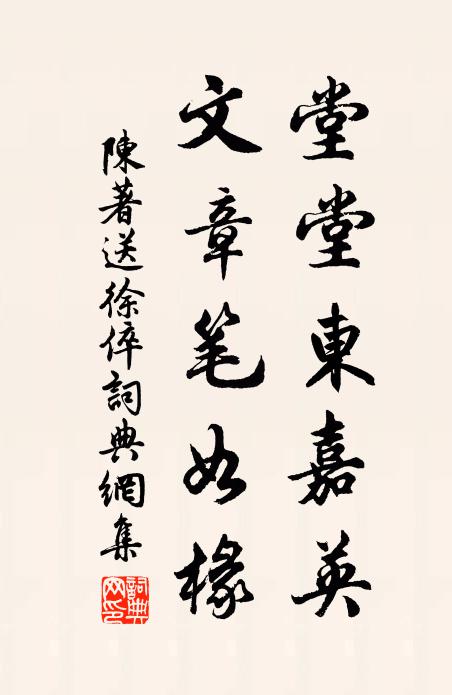 堂堂東嘉英
文章笔如椽
陳著送徐倅詞典網集
詞典网印